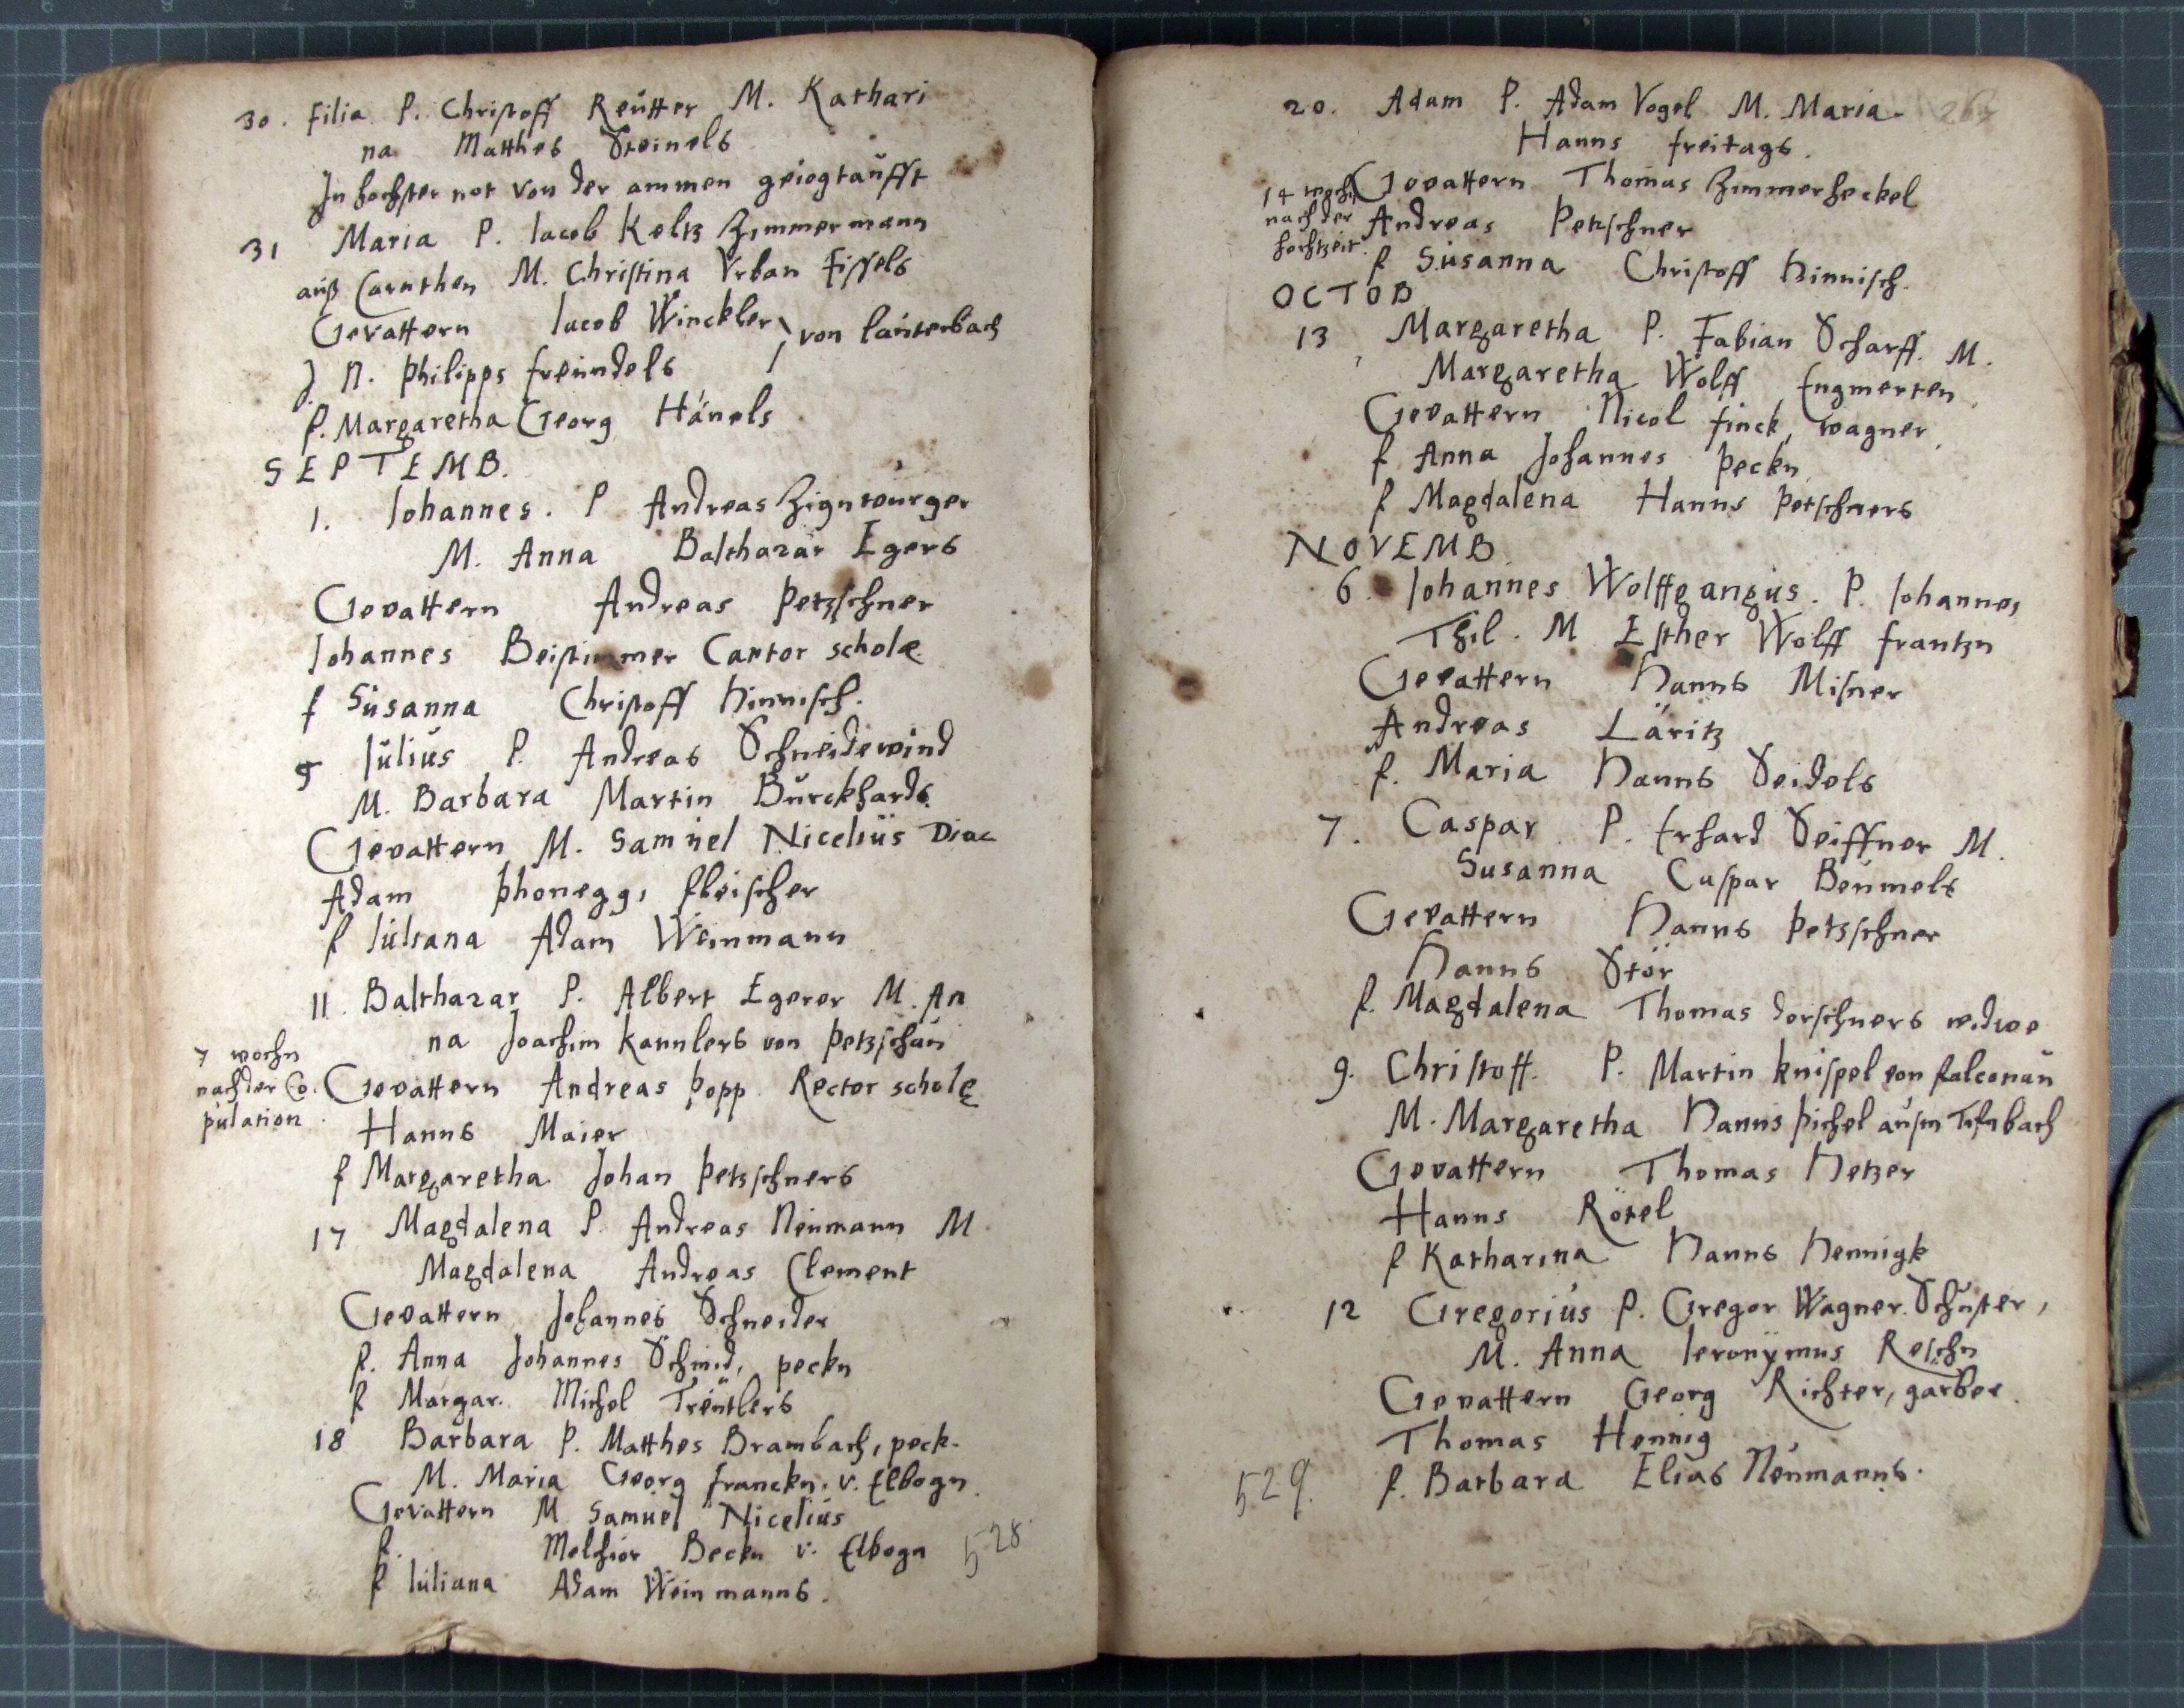 30. Filia P. Christoff Reütter M. Kathari
na Matthes Steinels
In hochster not von der ammen geiogtaüfft
31 Maria P. Iacob Keltz Zimmermann
auß Carnthen M. Christina Vrban Fissels
Gevattern Iacob Winckler von laüterbach
J N. Philipps freündels
f. Margaretha Georg Hänels
SEPTEMB.
1. Iohannes. P Andreas Zignwurger
M. Anna Balthazar Egers
Gevattern Andreas Petzschner
Iohannes Beistimmer Cantor scholæ
f Süsanna Christoff Hinnisch.
9 Iülius P. Andreas Schneidewind
M. Barbara Martin Bürckhards
Gevattern M. Samüel Nicelius Diac
Adam Phonegg, fleischer
f Iüliana Adam Weinmann
11. Balthazar P. Albert Egerer M. An
na Joachim Kannlers von Petzschaü
7 wochn
nach der Co.
pülation.
Gevattern Andreas Popp Rector scholę
Hanns Maier
f Margaretha Johan Petzschners
17 Magdalena P. Andreas Neümann M
Magdalena Andreas Clement
Gevattern Johannes Schneider
f. Anna Johannes Schmid, peckn
f Margar. Michel Treütlers
18 Barbara P. Matthes Brambach, peck.
M. Maria Georg Franckn. v. Elbogn
Gevattern M Samüel Nicelius
f. Melchior Beckn v. Elbogn
f Iüliana Adam Weinmanns.
528
20. Adam P. Adam Vogel M. Maria
267
Hanns freitags.
14 wochn
nach der
hochtzeit.
Gevattern Thomas Zimmerheckel
Andreas Petzschner
f Süsanna Christoff Hinnisch.
OCTOB
13 Margaretha P. Fabian Scharff. M.
Margaretha Wolff Engmerten
Gevattern Nicol finck, wagner
f Anna Johannes Peckn
f Magdalena Hanns Petschners
NOVEMB
6. Iohannes Wolffgangüs. P. Iohannes
Thil. M Esther Wolff frantzn
Gevattern Hanns Misner
Andreas Läritz
f. Maria Hanns Seidels
7. Caspar P. Erhard Seiffner M.
Susanna Caspar Beümels
Gevattern Hanns Petzschner
Hanns Stör
f. Magdalena Thomas dorschners widwe
9. Christoff. P. Martin Knispel von falconaü
M. Margaretha Hanns Pichel aüsm Tifnbach
Gevattern Thomas Hetzer
Hanns Rötel
f Katharina Hanns Hennigk
12 Gregoriüs P. Gregor Wagner. Schüster,
M. Anna Ieronÿmus Reschn
Gevattern Georg Richter, garber.
Thomas Hennig
f. Barbara Elias Neümanns.
529.